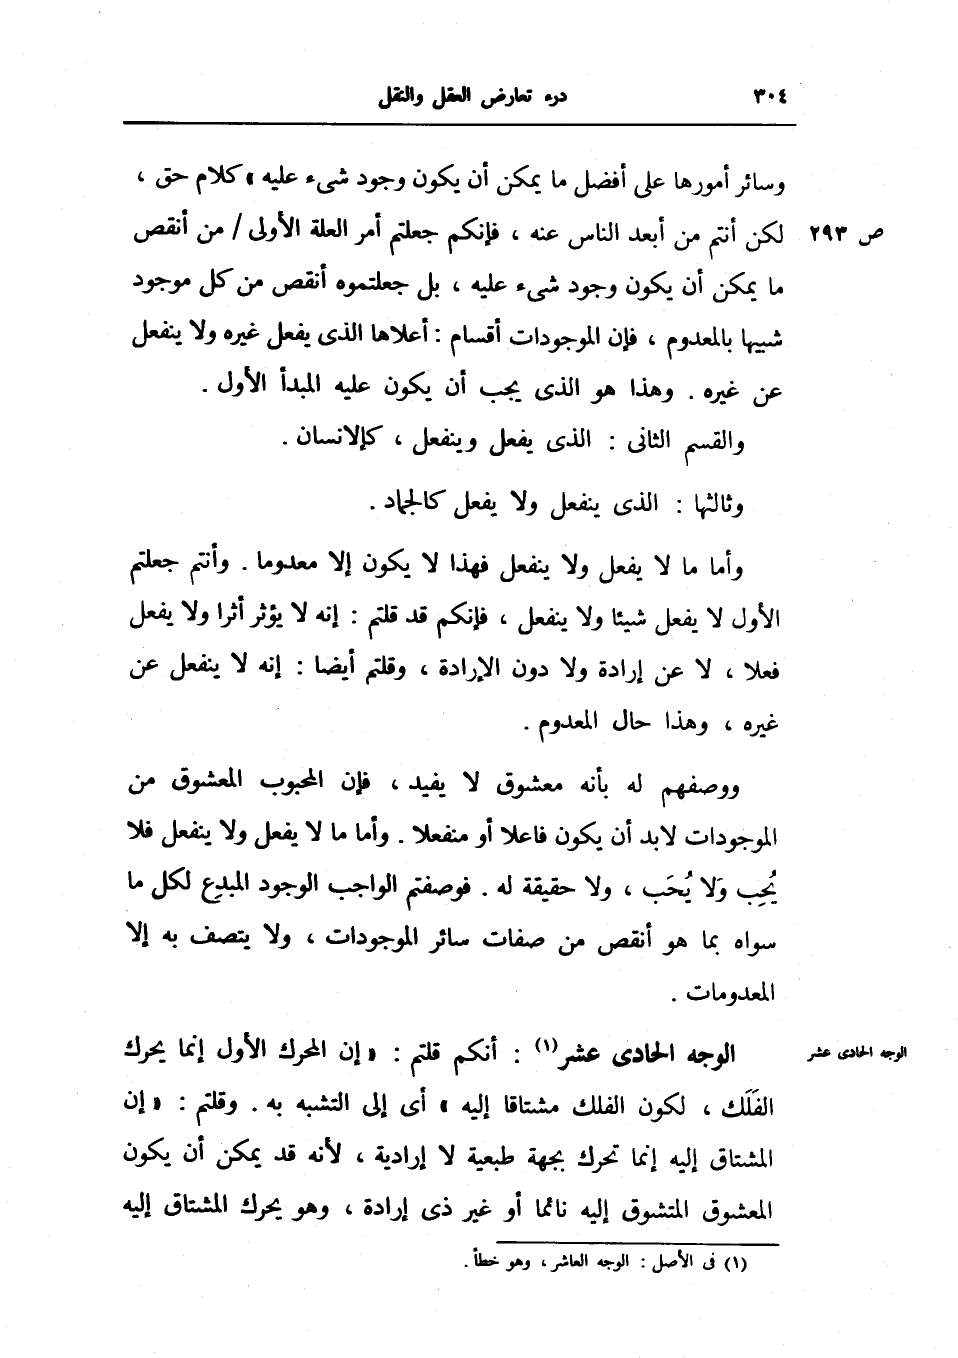 ٣٠٤ درء تعارض العقل والنقل
وسائر أمورها على أفضل ما يمكن أن يكون وجود شىء عليه » كلام حق ،
ص ٢٩٣ لكن أنتم من أبعد الناس عنه ، فإنكم جعلتم أمر العلة الأولى / من أنقص
ما يمكن أن يكون وجود شىء عليه ، بل جعلتموه أنقص من كل موجود
شبيها بالمعدوم ، فإن الموجودات أقسام : أعلاها الذى يفعل غيره ولا ينفعل
عن غيره . وهذا هو الذى يجب أن يكون عليه المبدأ الأول .
والقسم الثانى : الذى يفعل وينفعل ، كالإنسان .
وثالثها : الذى ينفعل ولا يفعل كالجماد .
وأما ما لا يفعل ولا ينفعل فهذا لا يكون إلا معدوما . وأنتم جعلتم
الأول لا يفعل شيئا ولا ينفعل ، فإنكم قد قلتم : إنه لا يؤثر أثرا ولا يفعل
فعلا ، لا عن إرادة ولا دون الإرادة ، وقلتم أيضا : إنه لا ينفعل عن
غيره ، وهذا حال المعدوم .
ووصفهم له بأنه معشوق لا يفيد ، فإن المحبوب المعشوق من
الموجودات لابد أن يكون فاعلا أو منفعلا . وأما ما لا يفعل ولا ينفعل فلا
يُحِب وَلا يُحَب ، ولا حقيقة له . فوصفتم الواجب الوجود المبدِع لكل ما
سواه بما هو أنقص من صفات سائر الموجودات ، ولا يتصف به إلا
المعدومات .
الوجه الحادى عشر الوجه الحادى عشر(١) : أنكم قلتم : « إن المحرك الأول إنما يحرك
الفَلَك ، لكون الفلك مشتاقا إليه » أى إلى التشبه به . وقلتم : « إن
المشتاق إليه إنما تحرك بجهة طبعية لا إرادية ، لأنه قد يمكن أن يكون
المعشوق المتشوق إليه نائما أو غير ذى إرادة ، وهو يحرك المشتاق إليه
(١) فى الأصل : الوجه العاشر ، وهو خطأ .